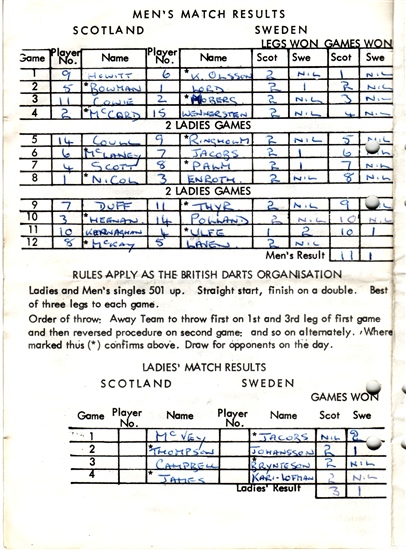 MEN'S MATCH RESULTS
SCOTLAND SWEDEN
LEGS WON GAMES WON
Game Player No. Name Player No. Name Scot Swe Scot Swe
1 9 HOWITT 6 *K. OLSSON 2 NIL 1 NIL
2 5 *BOWMAN 1 LORD 2 1 2 NIL
3 11 COWIE 2 * 2 NIL 3 NIL
4 2 *McCARD 15 WENNERSTEN 2 NIL 4 NIL
2 LADIES GAMES
5 14 COULL 9 *RINGHOLM 2 NIL 5 NIL
6 6 *McLANEY 7 JACOBS 2 1 6
7 4 SCOTT 8 *PALM 2 1 7 NIL
8 1 *NICOL 3 ENROTH 2 NIL 8 NIL
2 LADIES GAMES
9 7 DUFF 11 *THYR 2 NIL 9 NIL
10 3 *HEENAN 14 POLLAND 2 NIL 10 NIL
11 10 KERNAGHAN 4 *ULFE 1 2 10 1
12 8 *McKAY 5 2 NIL
Men's Result 11 1
RULES APPLY AS THE BRITISH DARTS ORGANISATION
Ladies and Men's singles 501 up. Straight start, finish on a double. Best
of three legs to each game.
Order of throw: Away Team to throw first on 1st and 3rd leg of first game
and then reversed procedure on second game; and so on alternately. Where
marked thus (*) confirms above. Draw for opponents on the day.
LADIES' MATCH RESULTS
SCOTLAND SWEDEN
GAMES WON
Game Player No. Name Player No. Name Scot Swe
1 McVEY *JACOBS NIL 2
2 *THOMPSON JOHANSSON 2 1
3 CAMPBELL *BRYNTESON 2 NIL
4 *JAMES KARI-LOFMAN 2 NIL
Ladies' Result 3 1